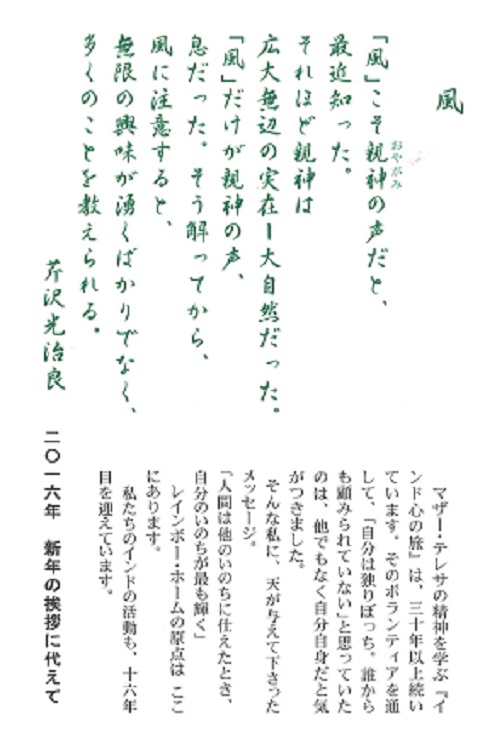 風
「風」こそ親神の声だと、
おやがみ
最近知った。
それほど親神は
広大無辺の実在ー大自然だった。
「風」だけが親神の声、
息だった。そう解ってから、
風に注意すると、
無限の興味が湧くばかりでなく、
多くのことを教えられる。
芹沢光治良
マザー・テレサの精神を学ぶ『イ
ンド心の旅』は、三十年以上続い
ています。そのボランティアを通
して、「自分は独りぼっち。誰から
も顧みられていない」と思っていた
のは、他でもなく自分自身だと気
がつきました。
そんな私に、天が与えて下さった
メッセージ。
「人間は他のいのちに仕えたとき、
自分のいのちが最も輝く」
レインボー・ホームの原点は ここ
にあります。
私たちのインドの活動も、十六年
目を迎えています。
二〇一六年 新年の挨拶に代えて